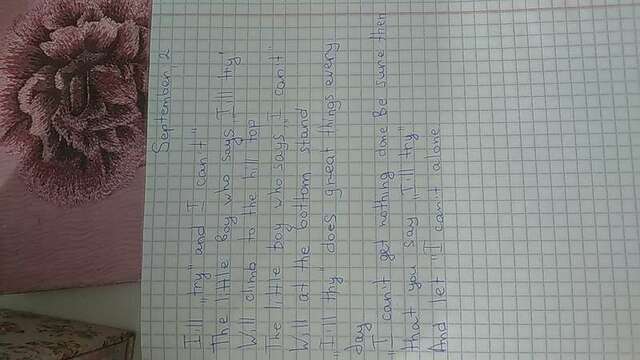 September 2
I'll „try" and I can't"
The little boy who says „I'll try"
Will climb to the hill top
The little boy who says „I can't"
Will at the bottom stand
„I'll thy" does great things every
day
„I can't get nothing done Be sure then
that you say „I'll try"
And let "I can't alone